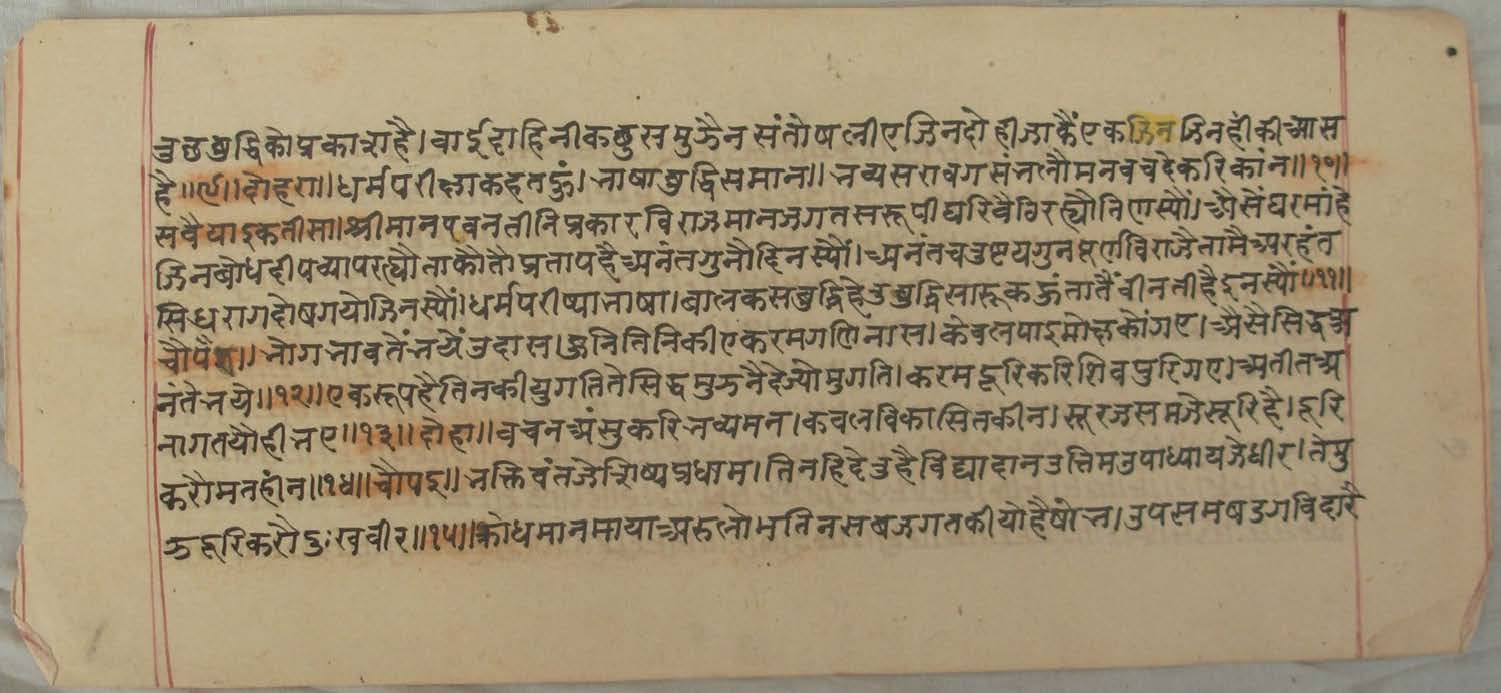 तुछ बुद्धि को प्रकाश है। वाई दाहिनी कछु समुझै न संतोष लीए जिन दोही जाकैं एक जिन जिनही की आस
है॥९॥ दोहरा॥ धर्मपरीक्षा कहत हूं। भाषा बुद्धि समान॥ भव्य सरावग संभलौ मन वच दे करि कांन॥१०॥
सवैया इकतीसा॥ श्रीमान पवन तीनि प्रकार विराजमान जगत सरूपी घरि वैठि रह्यौ नि स्यौं। अैसें घर मांहे
जिनबोध दीप व्याप रह्यौ ताकौ तौ प्रताप है अनंत गुनौ दिन स्यौं। अनंत चउष्टय गुन पूर्ण विराजै तामै अरहंत
सिध राग दोष गयो जिन स्यौं। धर्मपरीष्या भाषा। बालक सबुद्धि हे उ बुद्धि सारू कहूं तातैं वीनती है इन स्यौं॥११॥
चौपै॥ भोग भाव तें भयें उदास। हुनि तिनि की एकरम गणि नास। केवल पाइ मोछ कों गए। अैसै सिद्ध अ
नंते भये॥१२॥ एक रूप है तिनकी युगति ते सिद्ध मुझनै देज्यो मुगति। करम दूरि करि शिवपुरि गए। अतीत अ
नागत यौही भए॥१३॥ दोहा॥ वचन अंसु करि भव्य मन। कवल विकासित कीन। सूरज सम जे सूरि है। दूरि
करौ मन हीन॥१४॥ चौपइ॥ भक्तिवंत जे शिष्य प्रधाम। तिनहि दे उहै विद्यादान उत्तिम उपाध्याय जे धीर। ते मु
झ दूरि करौ दुःख वीर॥१५॥ क्रोध मान माया अरु लोभ तिन सब जगत कीयो है षोभ। उपसम षडग विदारै